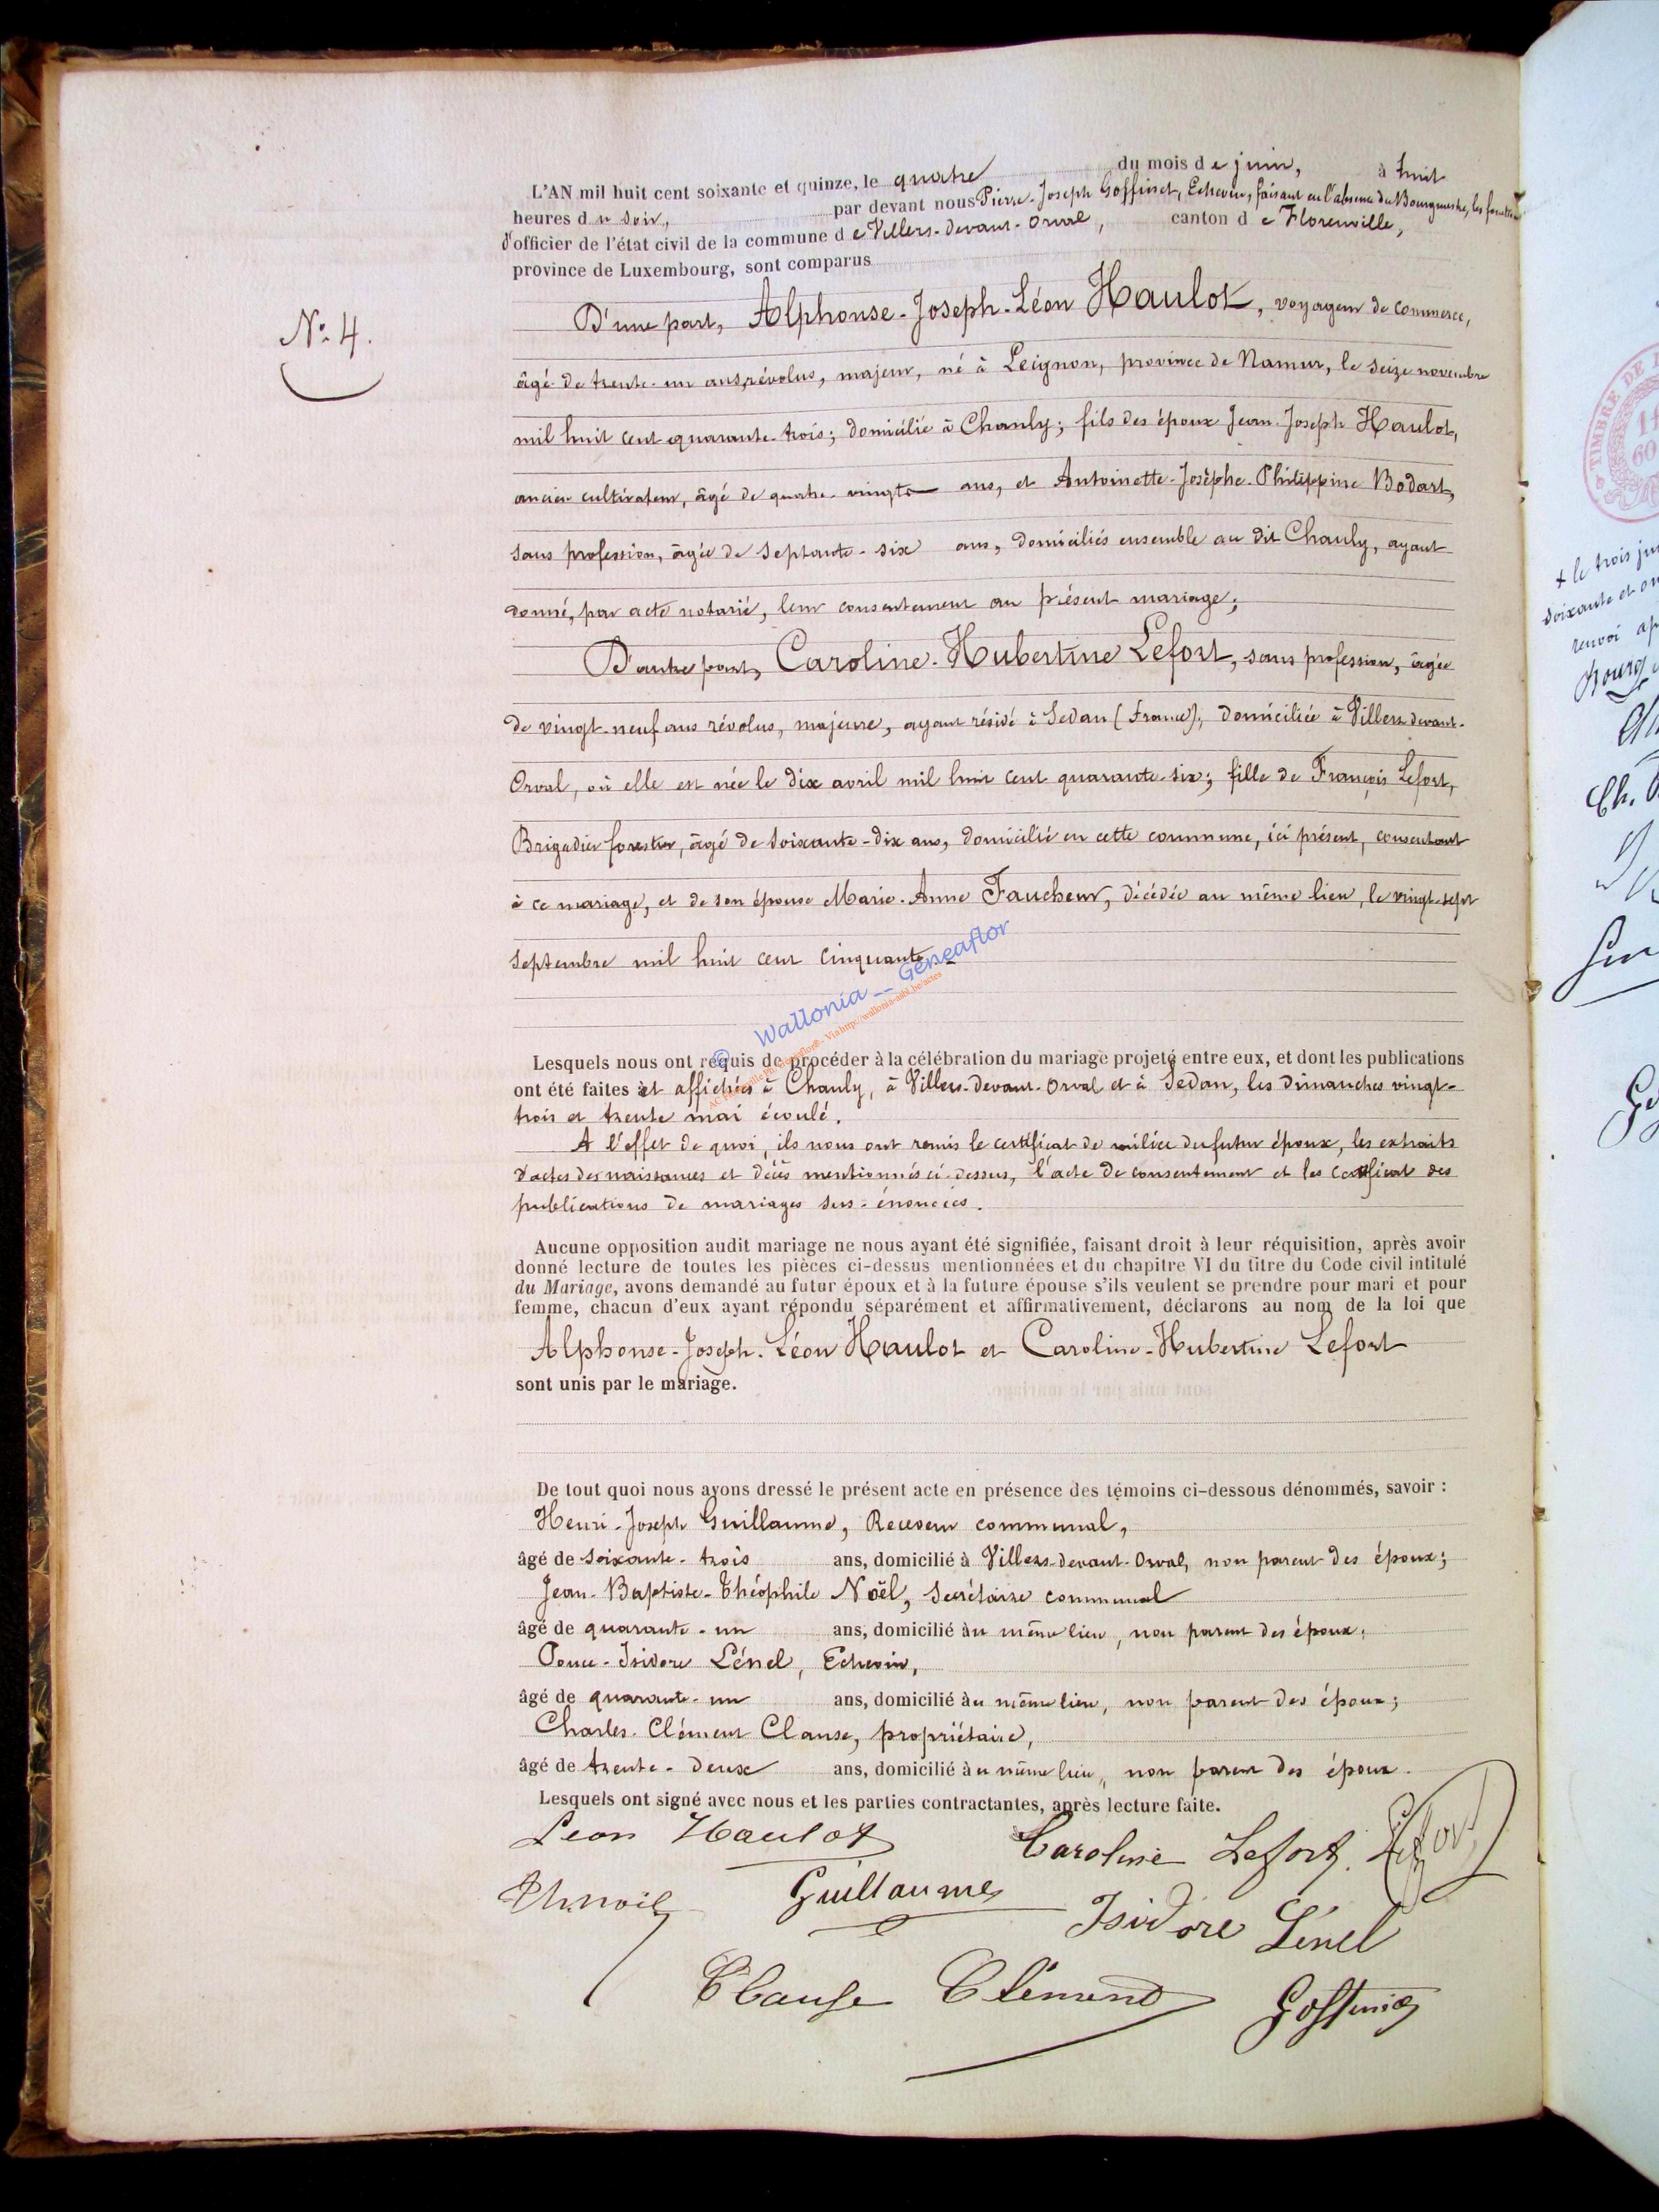 L'AN mil huit cent soixante et quinze, le quatre du mois de juin, à huit
heures du soir, par devant nous Pierre-Joseph Goffinet, Echevin, faisant en l'absence du Bourgmestre, les fonctions
d'officier de l'état civil de la commune de Villers-devant-Orval, canton de Florenville,
province de Luxembourg, sont comparus
N° 4.
D'une part, Alphonse-Joseph-Léon Haulot, voyageur de commerce,
âgé de trente-un ans révolus, majeur, né à Leignon, province de Namur, le seize novembre
mil huit cent quarante-trois; domicilié à Chanly; fils des époux Jean-Joseph Haulot,
ancien cultivateur, âgé de quatre-vingts ans, et Antoinette-Josèphe-Philippine Bodart,
sans profession, âgée de septante-six ans, domiciliés ensemble au dit Chanly, ayant
donné, par acte notarié, leur consentement au présent mariage;
D'autre part, Caroline-Hubertine Lefort, sans profession, âgée
de vingt-neuf ans révolus, majeure, ayant résidé à Sedan (France); domiciliée à Villers-devant-
Orval, où elle est née le dix avril mil huit cent quarante-six; fille de François Lefort,
Brigadier forestier, âgé de soixante-dix ans, domicilié en cette commune, ici présent, consentant
à ce mariage, et de son épouse Marie-Anne Faucheur, décédée au même lieu, le vingt-sept
septembre mil huit cent cinquante.
© Wallonia __ Geneaflor
Via http://wallonia-asbl.be/actes
Lesquels nous ont requis de procéder à la célébration du mariage projeté entre eux, et dont les publications
ont été faites et affichées à Chanly, à Villers-devant-Orval et à Sedan, les dimanches vingt-
trois et trente mai écoulé.
A l'effet de quoi, ils nous ont remis le certificat de milice du futur époux, les extraits
d'actes des naissances et décès mentionnés ci-dessus, l'acte de consentement et les certificat des
publications de mariages sus-énoncées.
Aucune opposition audit mariage ne nous ayant été signifiée, faisant droit à leur réquisition, après avoir
donné lecture de toutes les pièces ci-dessus mentionnées et du chapitre VI du titre du Code civil intitulé
du Mariage, avons demandé au futur époux et à la future épouse s'ils veulent se prendre pour mari et pour
femme, chacun d'eux ayant répondu séparément et affirmativement, déclarons au nom de la loi que
Alphonse-Joseph-Léon Haulot et Caroline-Hubertine Lefort
sont unis par le mariage.
De tout quoi nous avons dressé le présent acte en présence des témoins ci-dessous dénommés, savoir :
Henri-Joseph Guillaume, Receveur communal,
âgé de soixante-trois ans, domicilié à Villers-devant-Orval, non parent des époux;
Jean-Baptiste-Théophile Noël, secrétaire communal
âgé de quarante-un ans, domicilié au même lieu, non parent des époux;
Ponce-Isidore Lénel, Echevin,
âgé de quarante-un ans, domicilié au même lieu, non parent des époux;
Charles-Clément Clause, propriétaire,
âgé de trente-deux ans, domicilié au même lieu, non parent des époux.
Lesquels ont signé avec nous et les parties contractantes, après lecture faite.
Leon Haulot Caroline Lefort. Lefort
Thnoël Guillaume Isidore Lénel
Clause Clément Goffinet
TIMBRE DE
11
60
+ le trois
soixante et
renvoi
Ch.